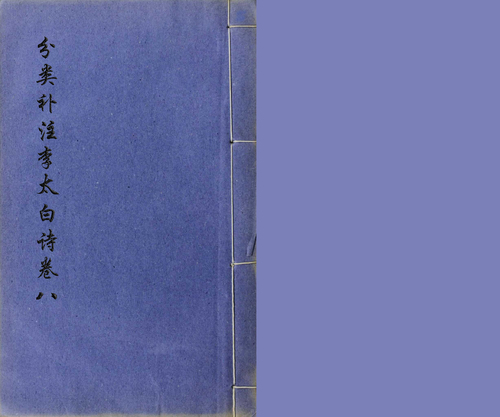 分类补注李太白诗卷八